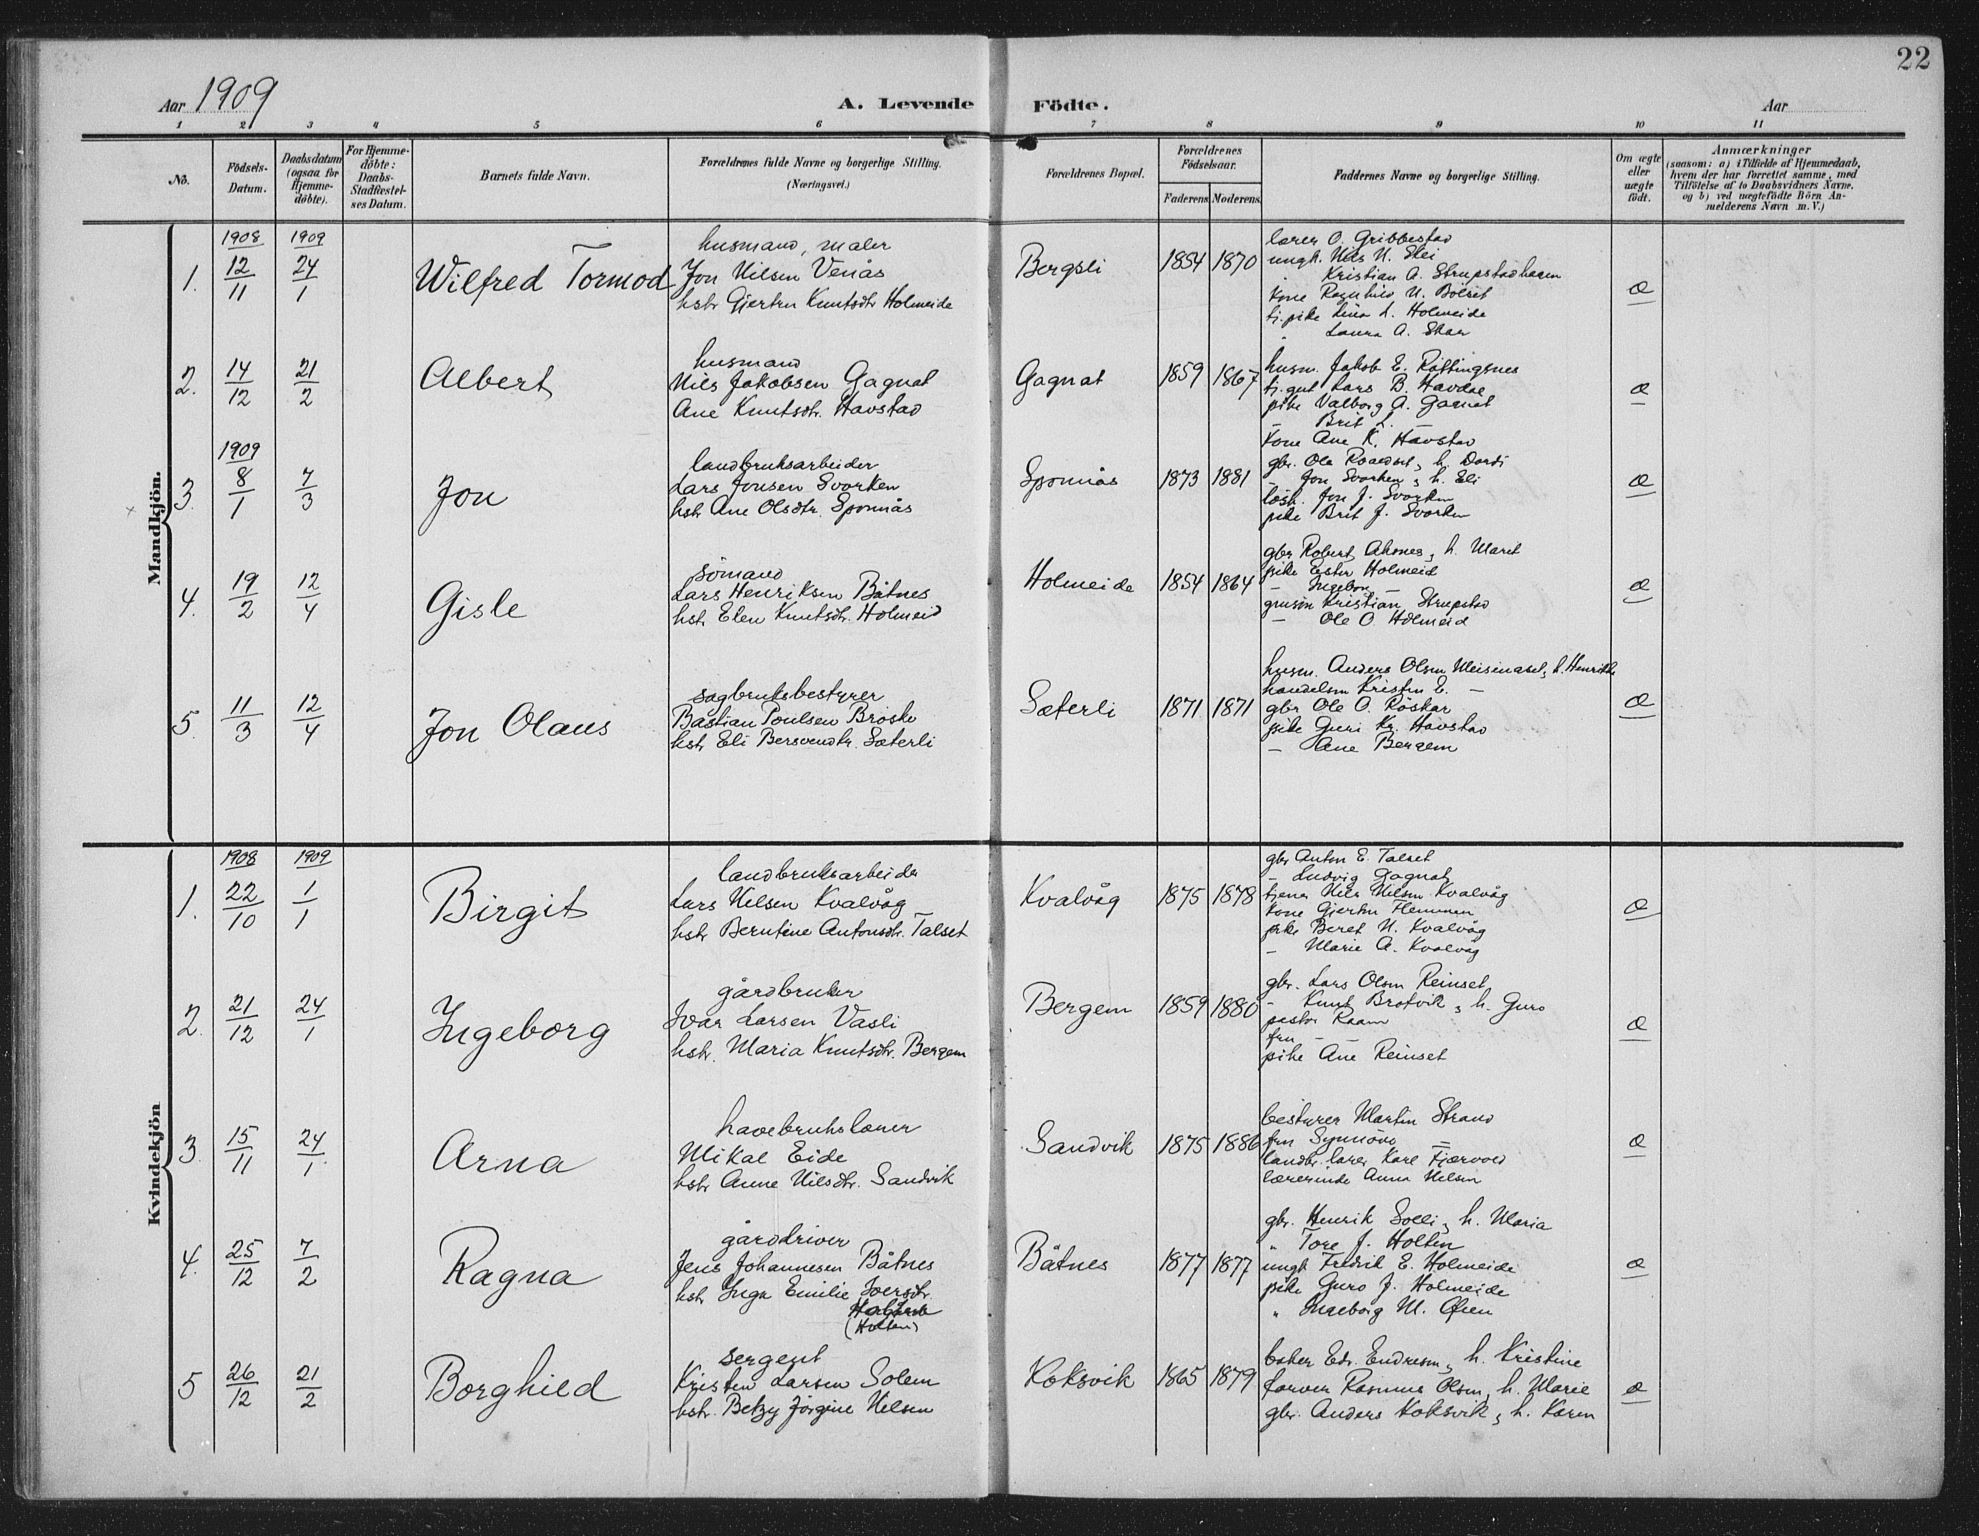 22
Aar 1909
A. Levende Födte.
Aar
1 2 3 4 5 6 7 8 9 10 11
No.
Födsels-Datum.
Daabsdatum (ogsaa for Hjemmedöbte).
For Hjemmedöbte: Daabs-Stadfæstelses Datum.
Barnets fulde Navn.
Forældrenes fulde Navne og borgerlige Stilling.
(Næringsvei.)
Forældrenes Bopæl.
Forældrenes Födselsaar.
Faderens Moderens
Faddernes Navne og borgerlige Stilling.
Om ægte eller uægte födt.
Anmærkninger
(saasom: a) i Tilfælde af Hjemmedaab,
hvem der har forrettet samme, med
Tilföielse af to Daabsvidners Navne.
og b) ved uægtefödte Börn An-
melderens Navn m. V.)
Mandkjön.
1908 1909
1. 12/11 24/1 Wilfred Tormod
husmand, maler
Jon Nilsen Venås
hstr Gjertru Knutsdtr Holmeide
Bergsli 1854 1870
lærer O. Gribbestad
ungk. Nils N. Skei
Kristian A. Strupstadhagen
kone Ragnhild N. Bölset
tj.pike Lina L. Holmeide
" Laura A. Skar
æ
2. 14/12 21/2 Albert
husmand
Nils Jakobsen Gagnat
Ane Knutsdtr. Havstad
Gagnat 1859 1867
husm. Jakob E. Röttingsnes
tj.gut Lars B. Havdal
pike Valborg A. Gagnat
– Brit L. –
kone Ane K. Havstad
æ
1909
3. 8/1 7/3 Jon
landbruksarbeider
Lars Jonsen Svorken
hstr Ane Olsdtr. Sponnås
Sponnås 1873 1881
gbr. Ole Roaldset, h. Dordi
– Jon Svorken, h. Eli
lösk. Jon J. Svorken
pike Brit J. Svorken
æ
4. 19/2 12/4 Gisle
sömand
Lars Henriksen Båtnes
hstr Elen Knutsdtr. Holmeid
Holmeide 1854 1864
gbr Robert Ahsnes, h. Marit
pike Ester Holmeid
– Ingeborg –
grusön Kristian Strupstad
– Ole O. Holmeid
æ
5. 11/3 12/4 Jon Olaus
sagbruksbestyrer
Bastian Poulsen Bröske
hstr Eli Bersvendtr. Sæterli
Sæterli 1871 1871
husm. Anders Olsen Meisinaset, h. Henrikke
handelsm Kristen E. –
gbr Ole O. Röskar
pike Guri Kr. Havstad
– Ane Bergem
æ
Kvindekjön
1908 1909
1. 22/10 1/1 Birgit
landbruksarbeider
Lars Nilsen Kvalvåg
hstr Berntine Antonsdtr. Talset
Kvalvåg 1875 1878
gbr Anton E. Talset
– Ludvig Gagnat
tjener Nils Nilsen Kvalvåg
kone Gjertru Flemmen
pike Beret N. Kvalvåg
– Marie A. Kvalvåg
æ
2. 21/12 24/1 Ingeborg
gårdbruker
Ivar Larsen Vasli
hstr. Maria Knutsdtr. Bergem
Bergem 1859 1880
gbr. Lars Olsen Reinset
– Knut Brotvik, h. Guro
pastor Raam
fru –
pike Ane Reinset
æ
3. 15/11 24/1 Arna
havebrukslærer
Mikal Eide
hstr Anne Nilsdtr. Sandvik
Sandvik 1875 1886
bestyrer Martin Strand
fru Synnöve –
landbr. lærer Karl Fjærvold
lærerinde Anna Nilsen
æ
4. 25/12 7/2 Ragna
gårddriver
Jens Johannesen Båtnes
hstr Inga Emilie Iversdtr.
(Holten)
Båtnes 1877 1877
gbr. Henrik Solli, h. Maria
" Tore J. Holten
ungk Fredrik E. Holmeide
pike Guro J. Holmeide
" Ingeborg M. Öien
æ
5 26/12 21/2 Borghild
sergent
Kristen Larsen Solem
hstr. Betzy Jörgine Nilsen
Koksvik 1865 1879
baker Edv. Endresen, h. Kristine
farver Rasmus Olsen, h. Marie
gbr. Anders Koksvik, h. Karen
æ